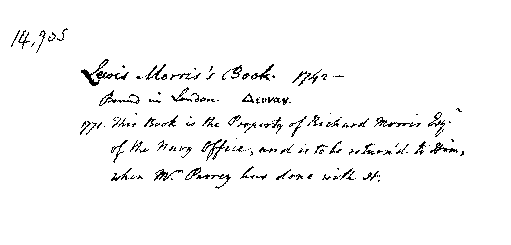 14,905
Lewis Morris's Book. 1742 —
Bound in London.
1771. This Book is the Property of Richard Morris Esqr.
of the Navy Office, and is to be return'd to Him,
when Mr. Parrey has done with it.